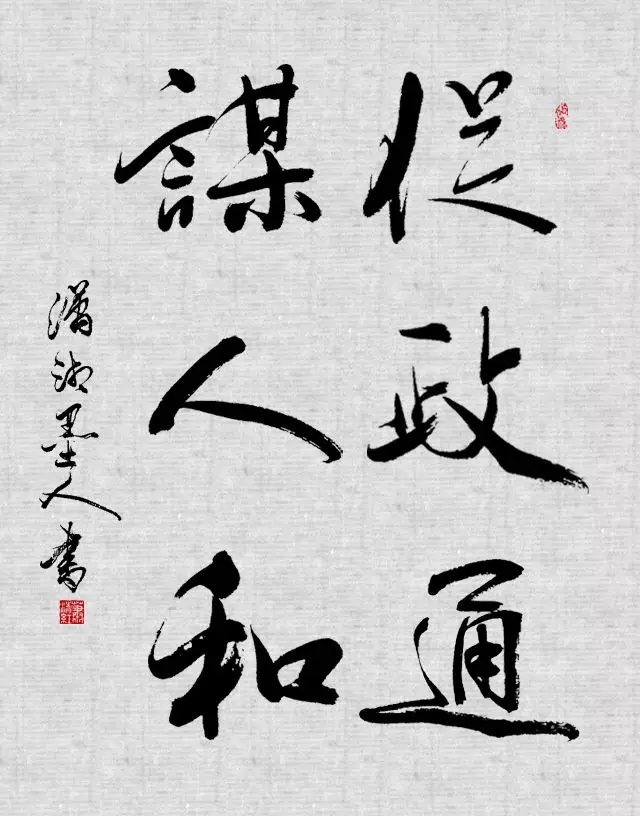 促政通
謀人和
瀟湘墨人書